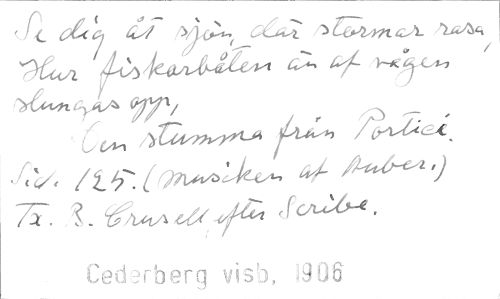 Se dig åt sjön, där stormar rasa,
Hur fiskarbåten än af vågen
slungas opp,
Den stumma från Portici.
Sid. 125. (Musiken af Auber.)
Tx. B. Crusell, efter Scribe.
Cederberg visb, 1906